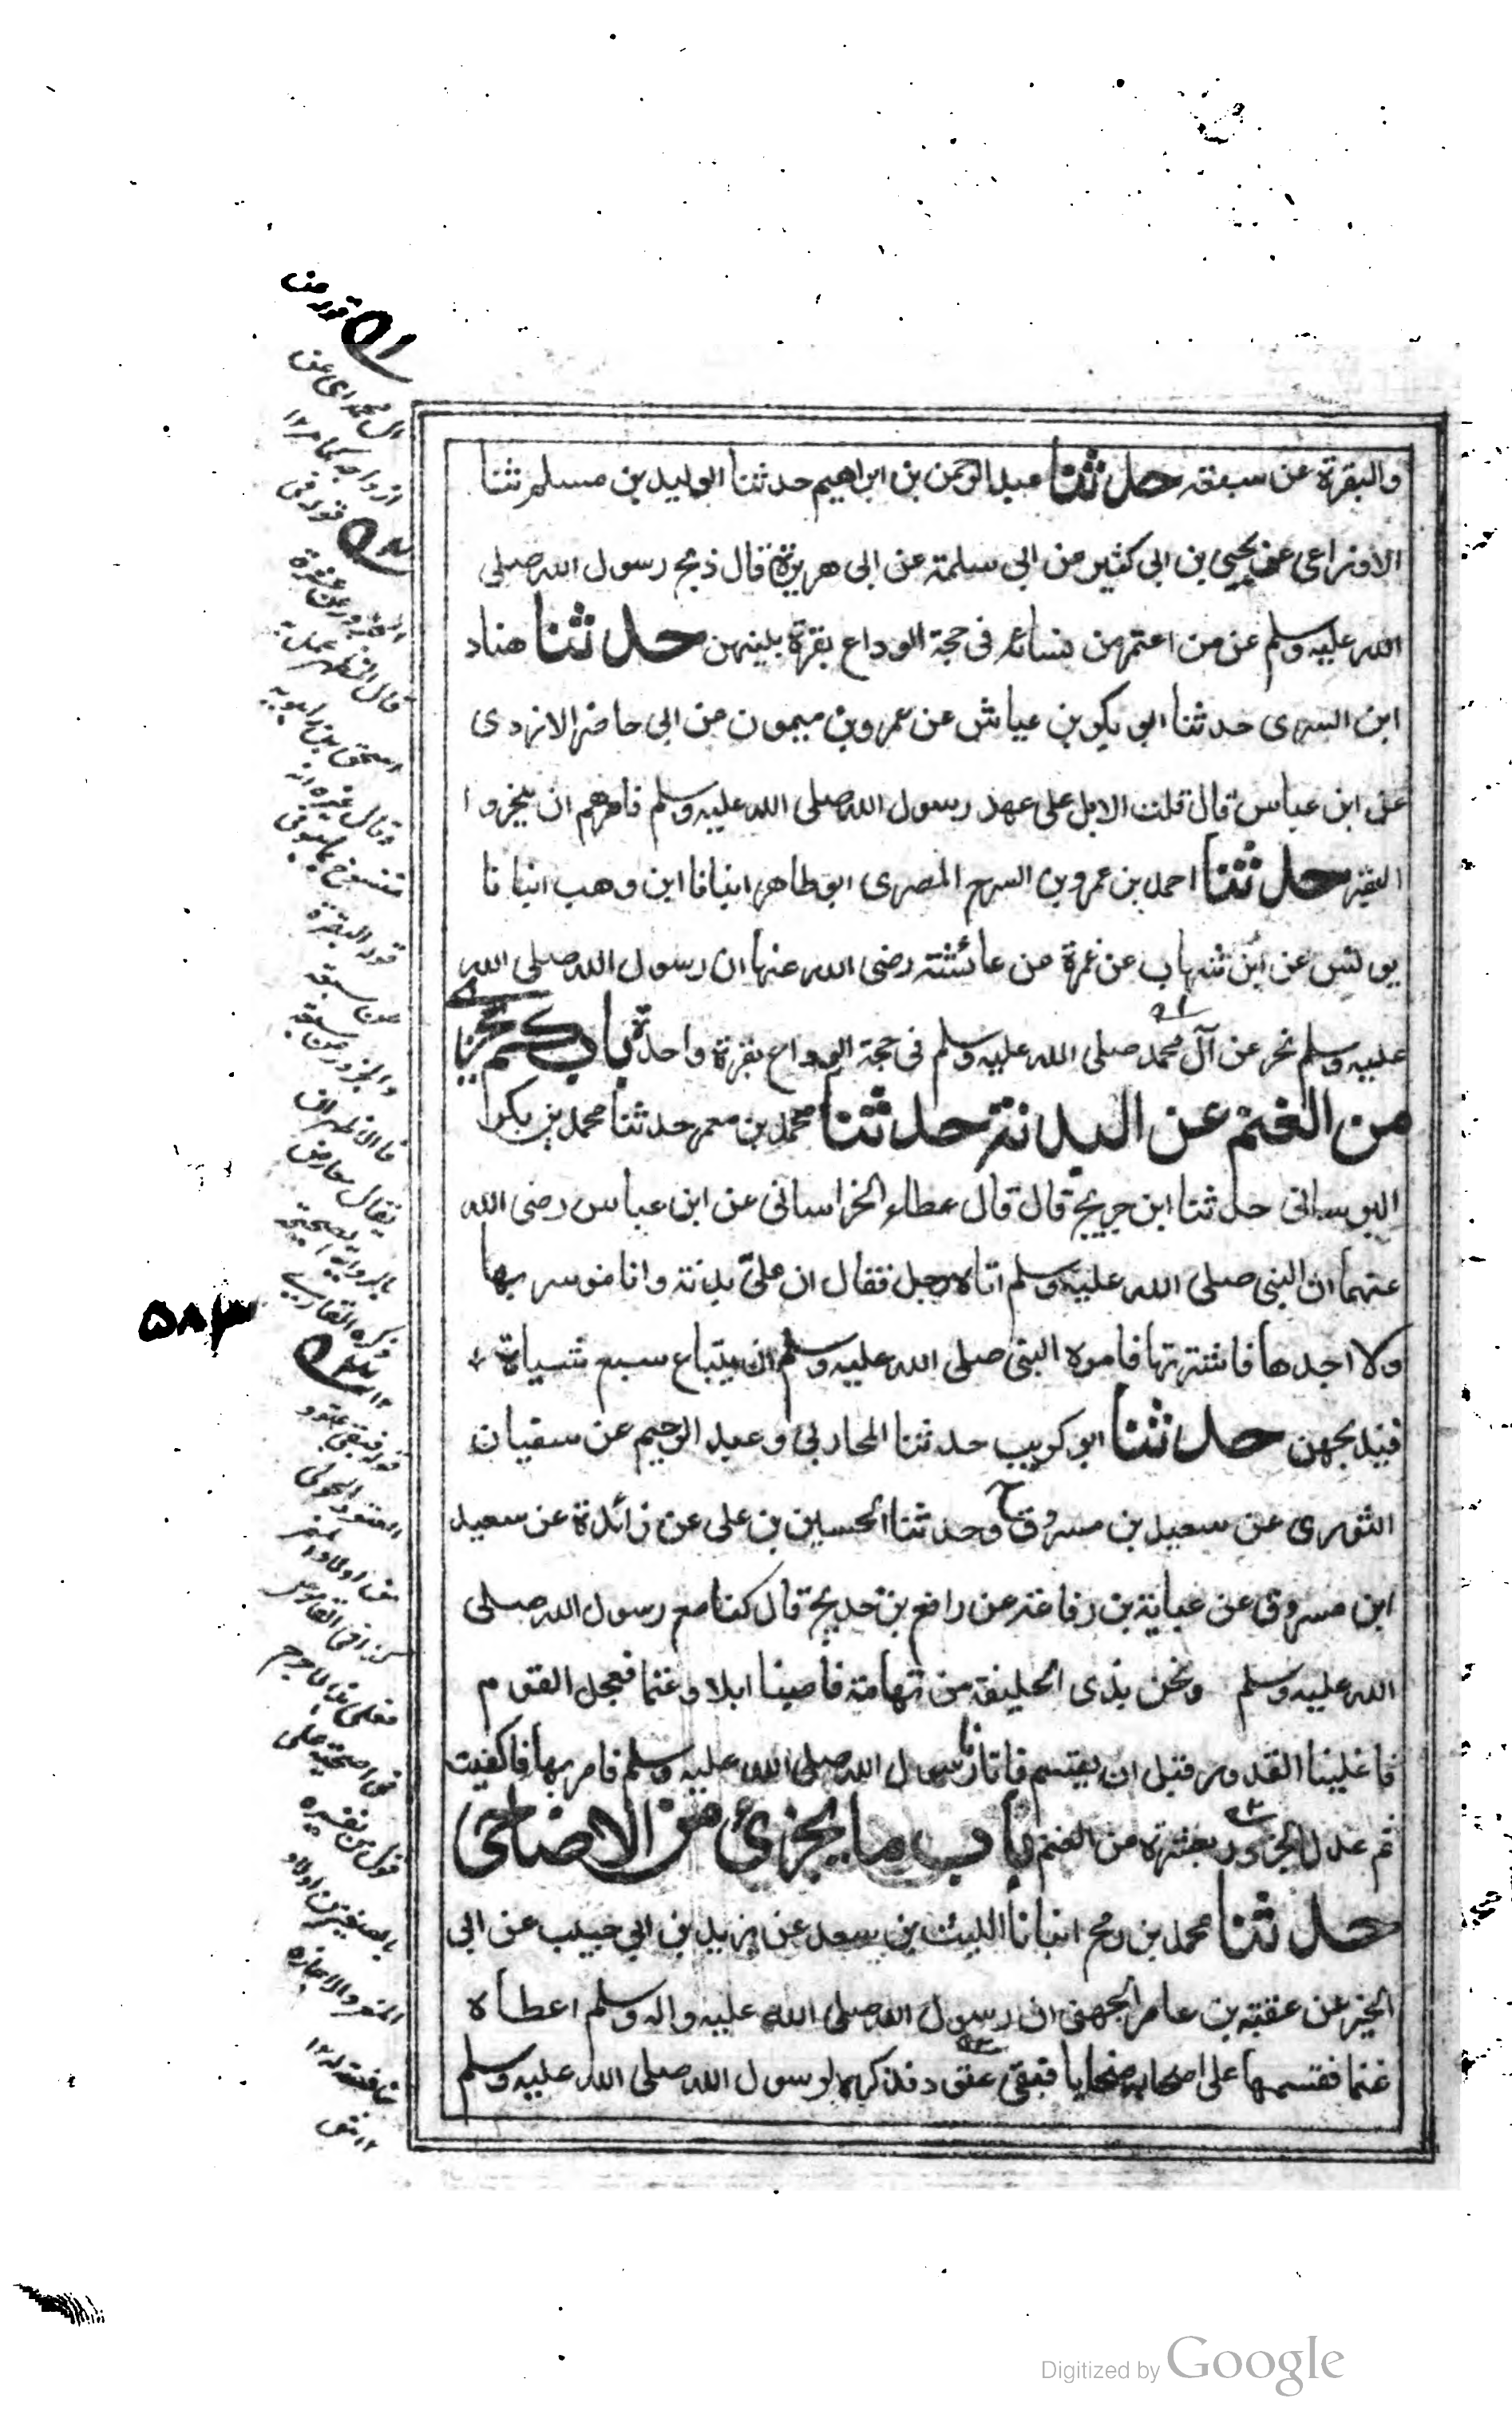 والبقرة عن سبعة حدثنا عبد الرحمن بن ابراهيم حدثنا الوليد بن مسلم ثنا
الاوزاعى عن يحيى بن ابى كثير عن ابى سلمة عن ابى هريرة قال ذبح رسول الله صلى
الله عليه وسلم عن من اعتمر من نسائه فى حجة الوداع بقرة بينهن حدثنا هناد
ابن السرى حدثنا ابو بكر بن عياش عن عمرو بن ميمون عن ابى حاضر الازدى
عن ابن عباس قال قلت الابل على عهد رسول الله صلى الله عليه وسلم فامرهم ان ينحروا
البقر حدثنا احمد بن عمرو بن السرح المصرى ابو طاهر انبانا ابن وهب انبانا
يونس عن ابن شهاب عن عمرة عن عائشة رضى الله عنها ان رسول الله صلى الله
عليه وسلم نحر عن آل محمد صلى الله عليه وسلم فى حجة الوداع بقرة واحدة باب كم يجزئ
من الغنم عن البدنة حدثنا محمد بن معمر حدثنا محمد بن بكر
البرسانى حدثنا ابن جريج قال قال عطاء الخراسانى عن ابن عباس رضى الله
عنهما ان النبى صلى الله عليه وسلم اتاه رجل فقال ان علىّ بدنة وانا موسر بها
ولا اجدها فاشتريها فامره النبى صلى الله عليه وسلم ان يبتاع سبع شياة
فيذبحهن حدثنا ابو كريب حدثنا المحاربى وعبد الرحيم عن سفيان
الثورى عن سعيد بن مسروق ح وحدثنا الحسين بن على عن زائدة عن سعيد
ابن مسروق عن عباية بن رفاعة عن رافع بن خديج قال كنا مع رسول الله صلى
الله عليه وسلم ونحن بذى الحليفة من تهامة فاصبنا ابلا وغنما فعجل القوم
فاغلينا القدور قبل ان يقسم فاتانا رسول الله صلى الله عليه وسلم فامر بها فاكفيت
ثم عدل الجزور بعشرة من الغنم باب ما يجزئ من الاضاحى
حدثنا محمد بن رمح انبانا الليث بن سعد عن يزيد بن ابى حبيب عن ابى
الخير عن عقبة بن عامر الجهنى ان رسول الله صلى الله عليه واله وسلم اعطاه
غنما فقسمها على اصحابه ضحايا فبقى عتود فذكره لرسول الله صلى الله عليه وسلم
قوله عن
ال محمد اى عن
ازواجه كما مر ١٢
قوله
قال
اسحق بن راهويه
وقال غيره انه
منسوخ
قوله البقرة
عن سبعة
والجزور عن سبعة
فالاظهر ان
يقال معارض
بالرواية الصحيحة
ذكره القارى
١٢
قوله فبقى عتود
العتود
من اولاد المعز
٥٨٣
Digitized by Google